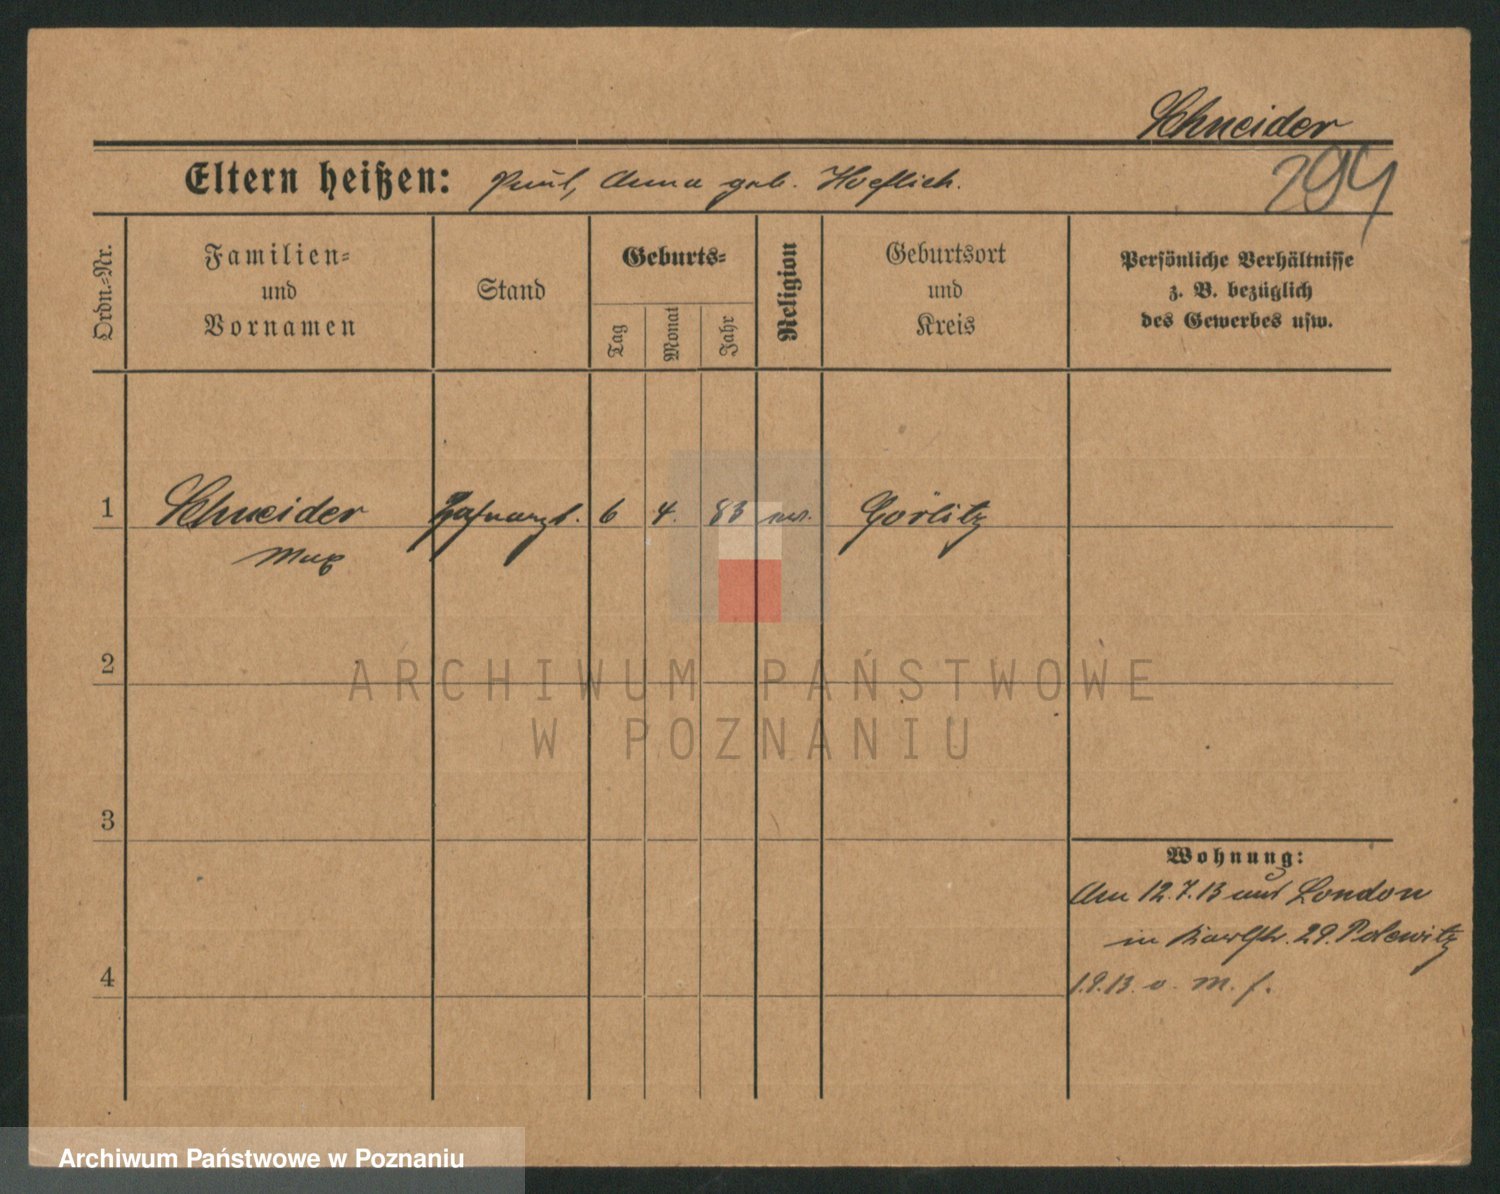 Schneider
Eltern heißen: Paul, Anna geb. Hoeflich.
294
Ordn.-Nr.
Familien-
und
Vornamen
Stand
Geburts-
Tag
Monat
Jahr
Religion
Geburtsort
und
Kreis
Persönliche Verhältnisse
z. B. bezüglich
des Gewerbes usw.
1 Schneider Zahnarzt. 6 4. 83 Görlitz
Max
2
3
4
Wohnung:
Am 12.7.13 aus London
in 29. Polewitz
1.9.13. v. m. f.
ARCHIWUM PAŃSTWOWE
W POZNANIU
Archiwum Państwowe w Poznaniu